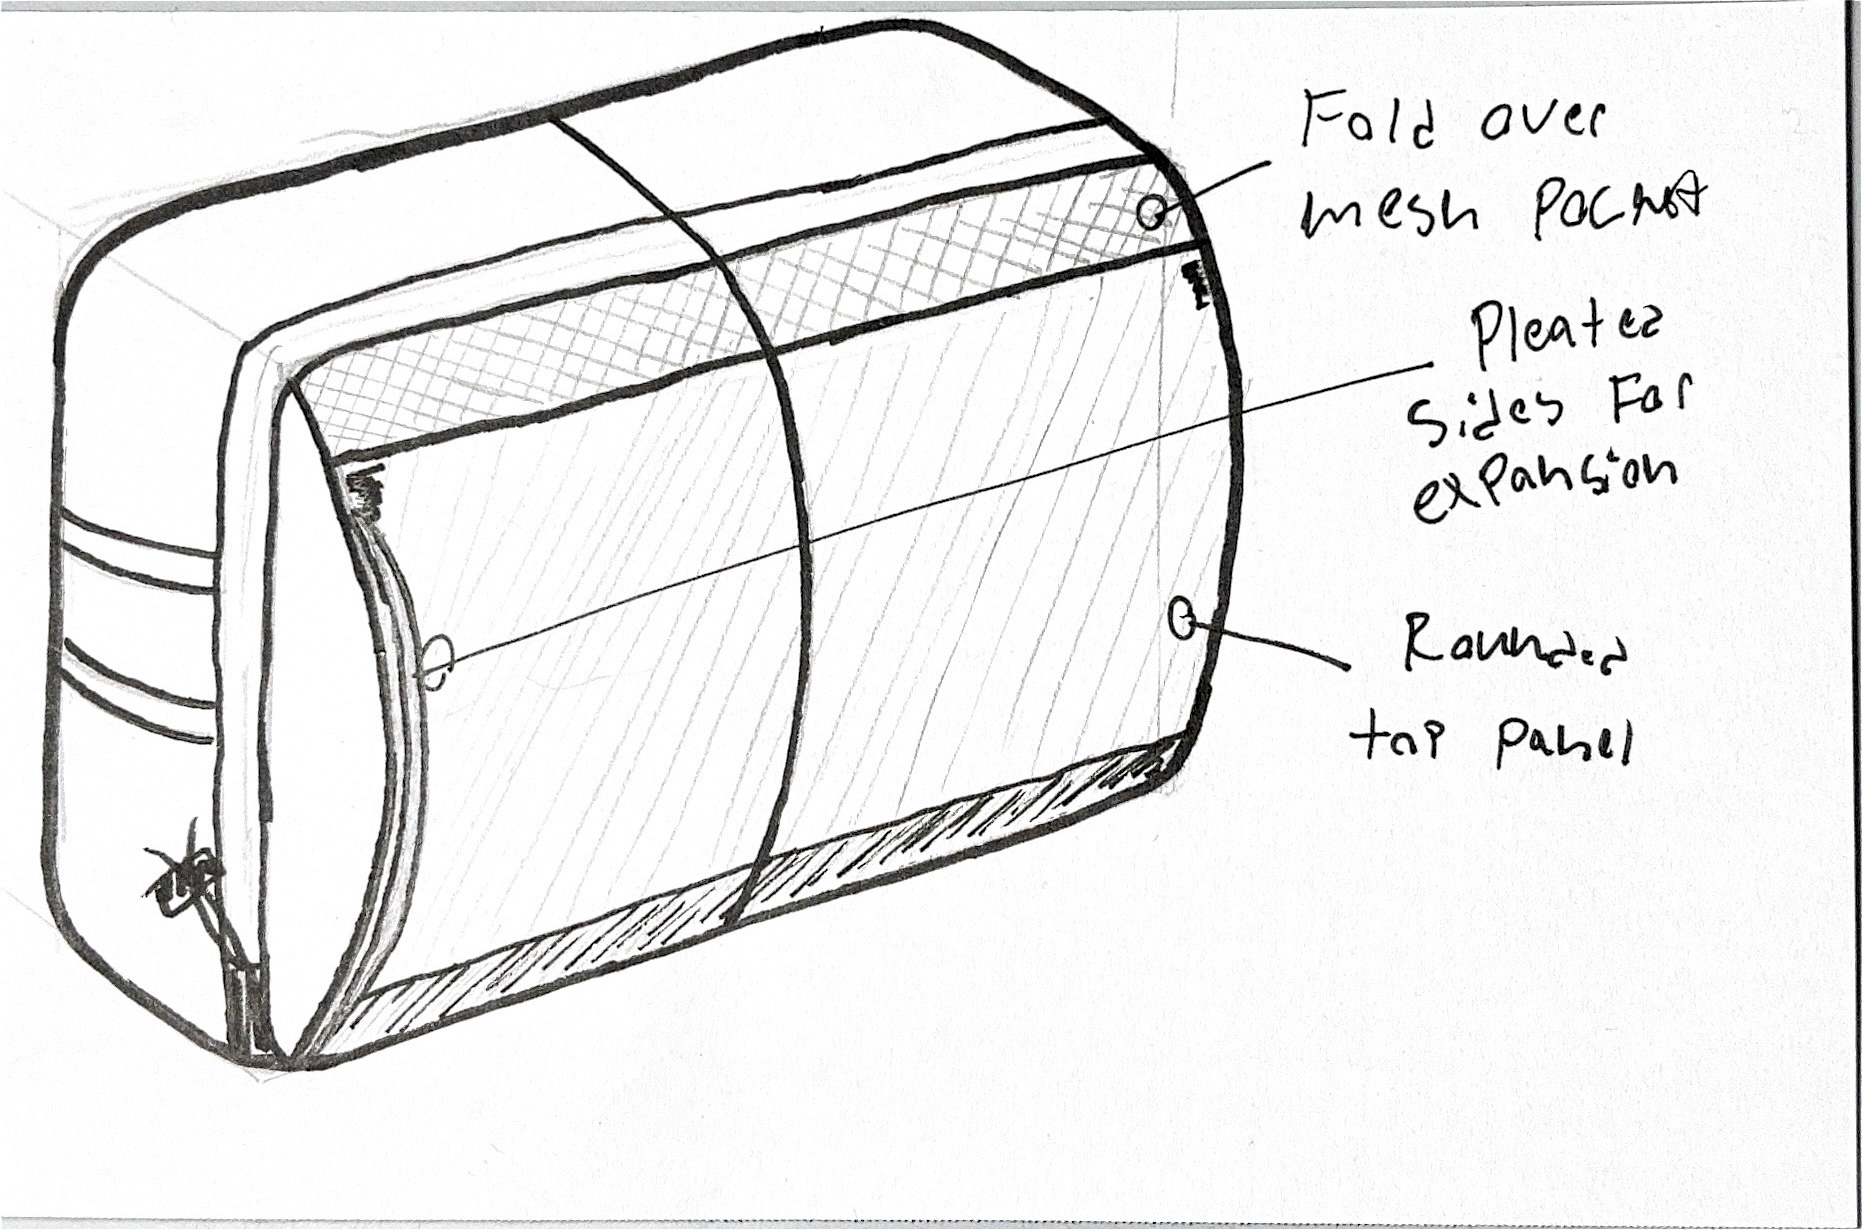 Fold over
mesh Pocket
Pleated
sides For
expansion
Rounded
top panel